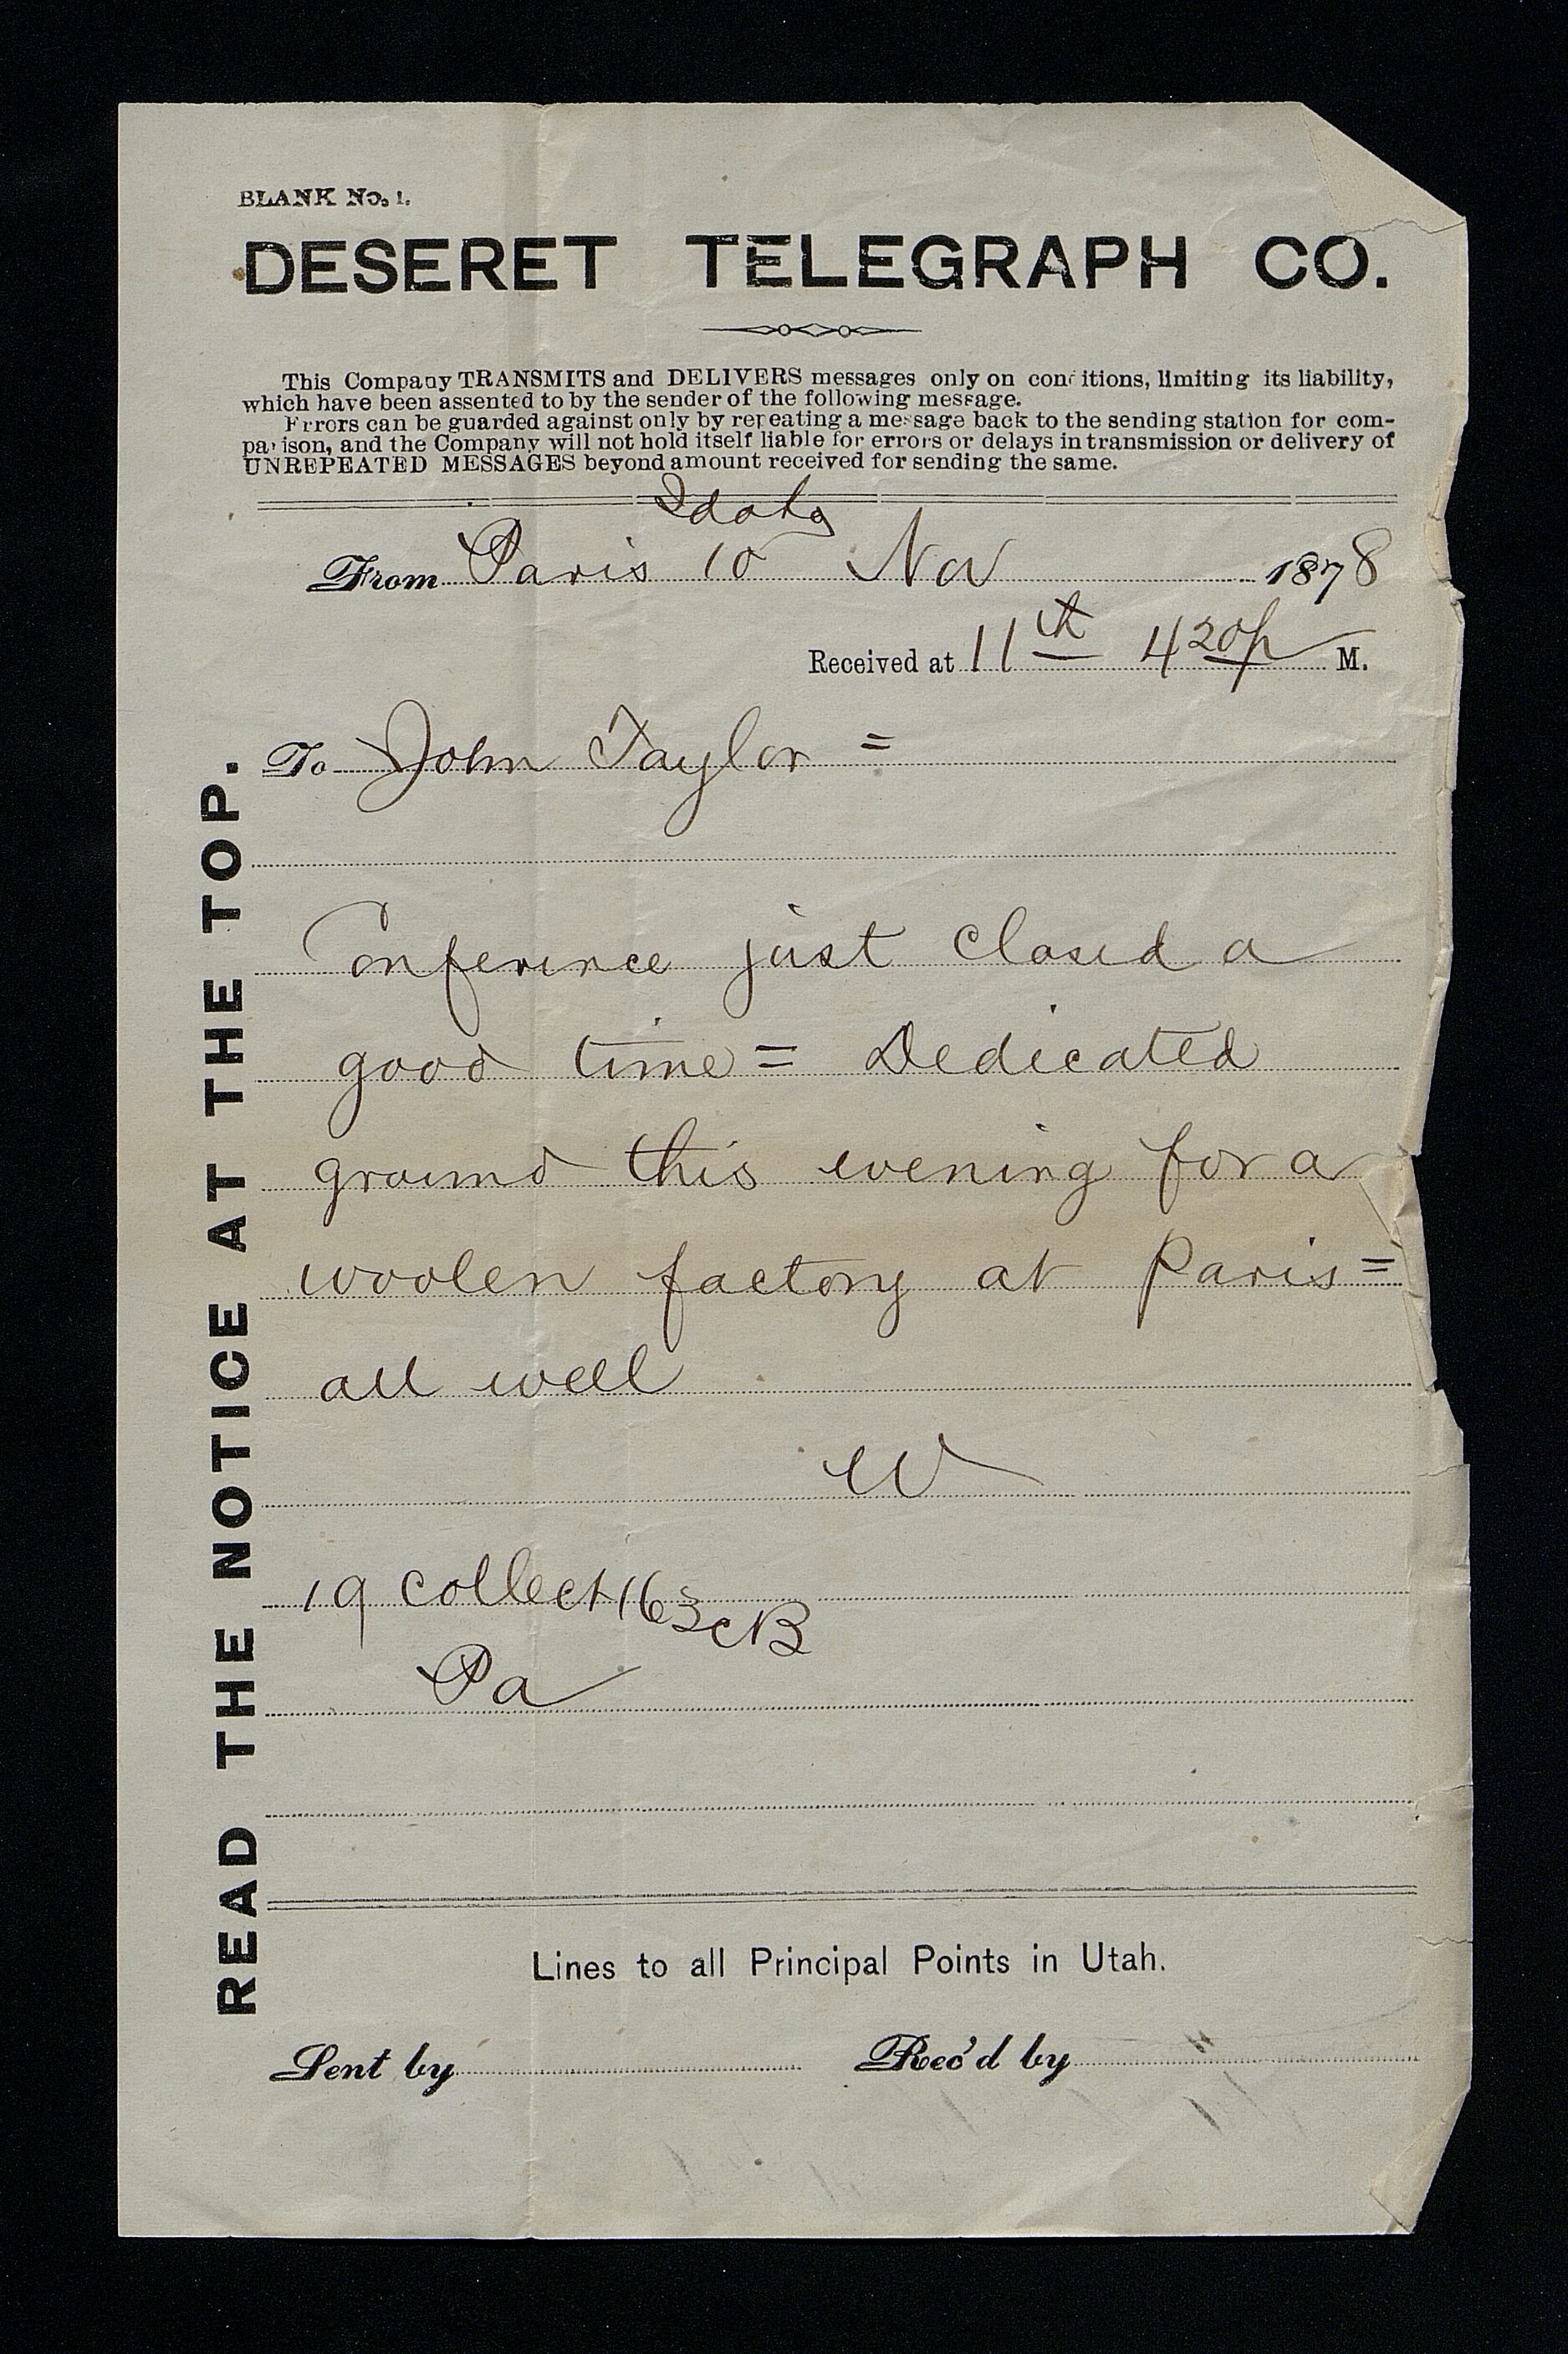 BLANK No. 1.
DESERET TELEGRAPH CO.
This Company TRANSMITS and DELIVERS messages only on conditions, limiting its liability,
which have been assented to by the sender of the following message.
Errors can be guarded against only by repeating a message back to the sending station for com-
parison, and the Company will not hold itself liable for errors or delays in transmission or delivery of
UNREPEATED MESSAGES beyond amount received for sending the same.
Idaho
From Paris 10 Nov 1878
Received at 11th 4 20 p M.
To John Taylor =
Conference just closed a
good time = Dedicated
ground this evening for a
woolen factory at Paris =
all well
W
19 collect 163 cB
Pa
READ THE NOTICE AT THE TOP.
Lines to all Principal Points in Utah.
Sent by Rec'd by